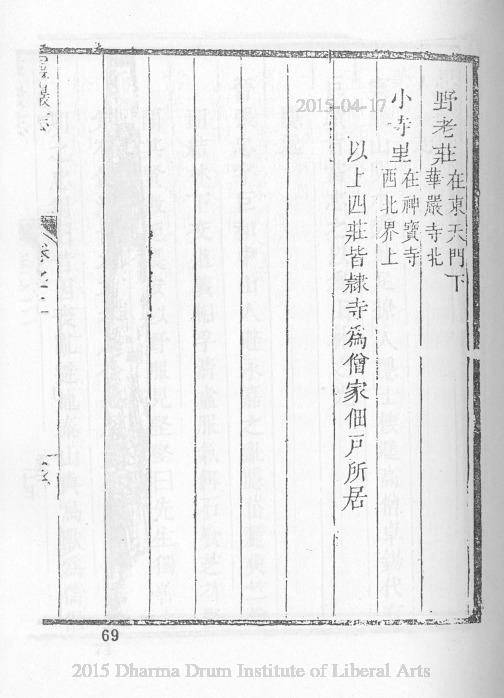 野老莊 在東天門下華嚴寺北
小寺里 在神寶寺西北界上
以上四莊皆隸寺為僧家佃戶所居
巖志
卷之二
69
2015-04-17
2015 Dharma Drum Institute of Liberal Arts